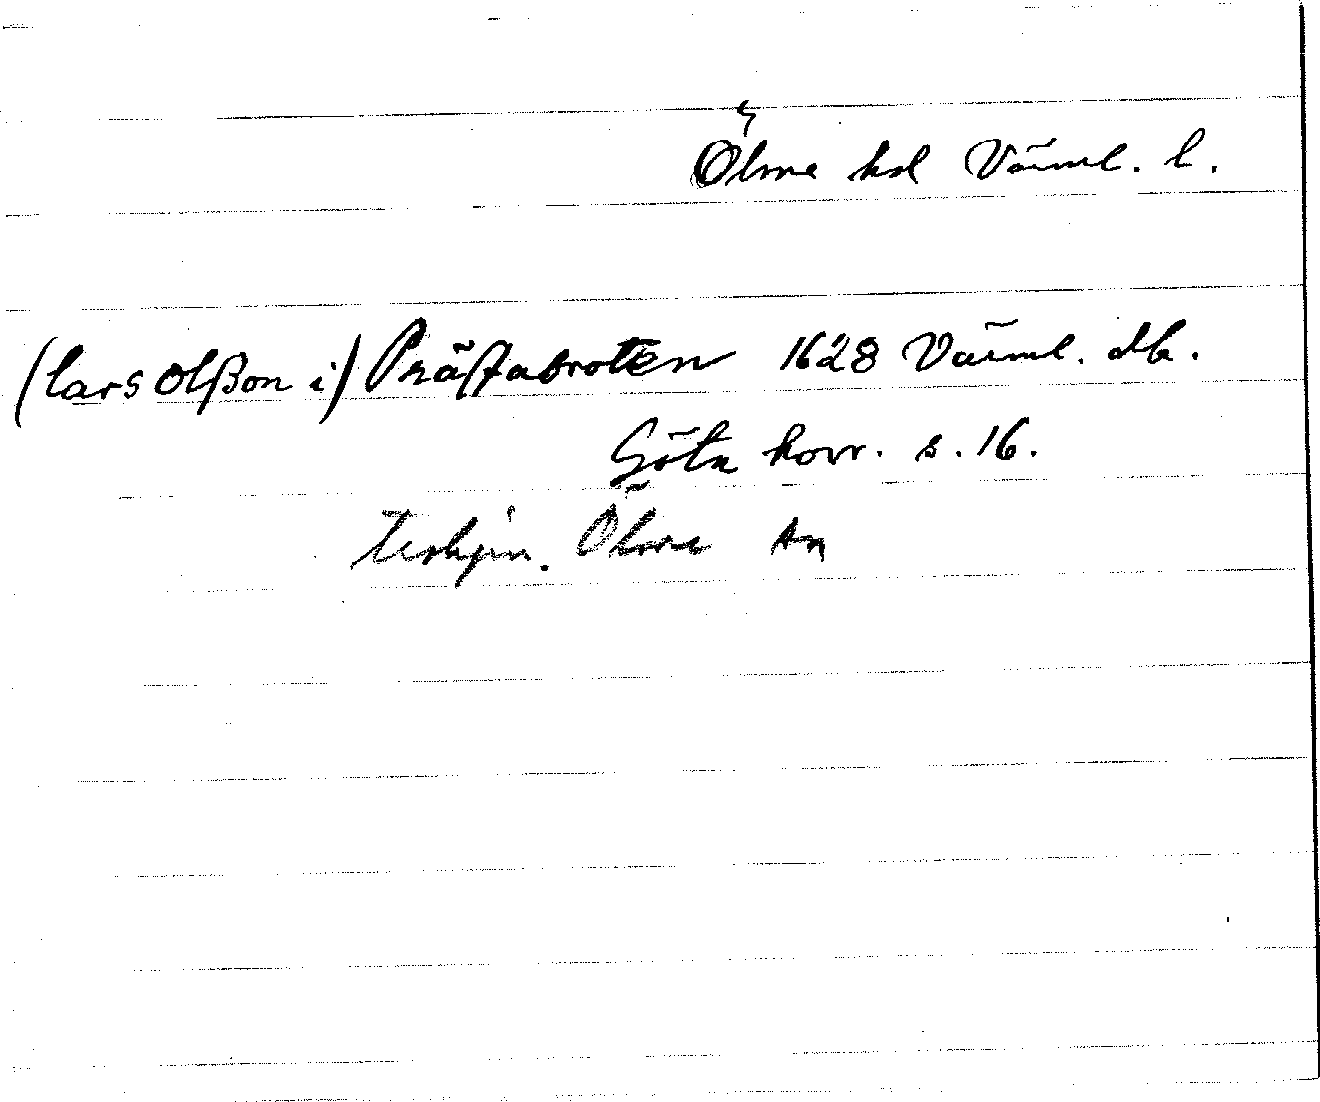 Ölme hd Värml. l.
(lars olßon i) Prästabroten 1628 Värml. db.
Göta hovr. s. 16.
Ölme An